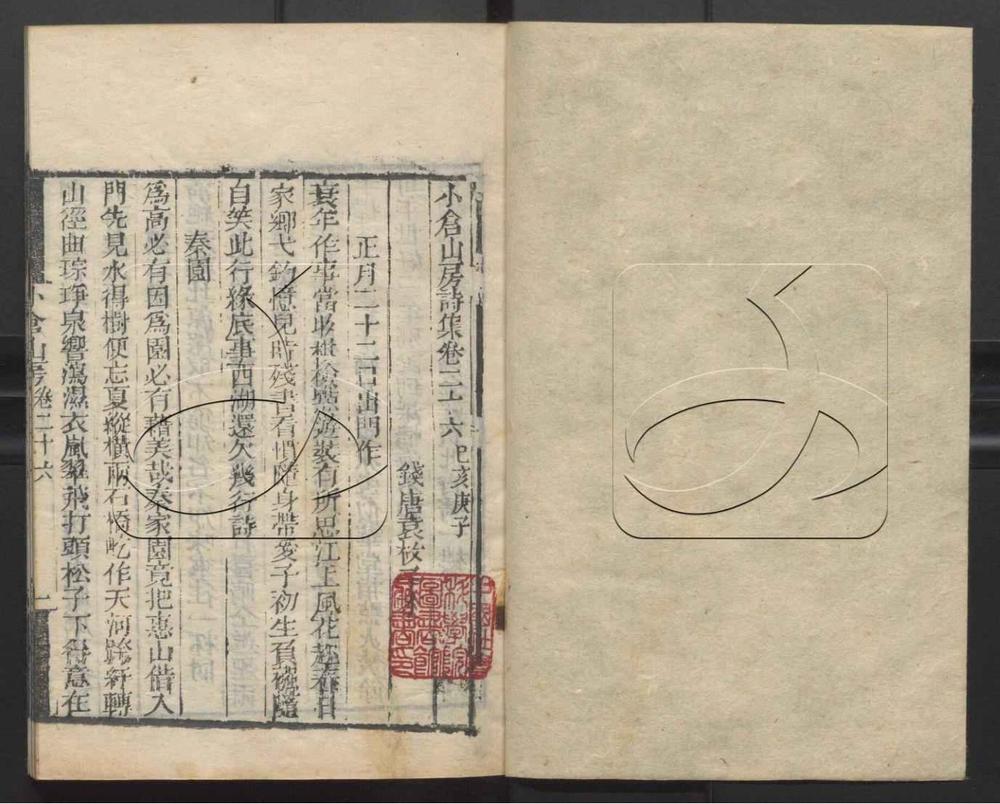 小倉山房詩集卷二十六 己亥庚子
錢唐袁枚子才
正月二十二日出門作
衰年作事當收棋檢點遊裝有所思江上風花趁春日
家鄉弋釣憶兒時殘書看慣隨身帶愛子初生負襁隨
自笑此行緣底事西湖還欠幾行詩
秦園
爲高必有因爲園必有藉美哉秦家園竟把惠山借入
門先見水得樹便忘夏縱橫兩石橋屹作天河跨紆轉
山徑曲琮琤泉響瀉濕衣嵐翠飛打頭松子下得意在
小倉山房卷二十六
一